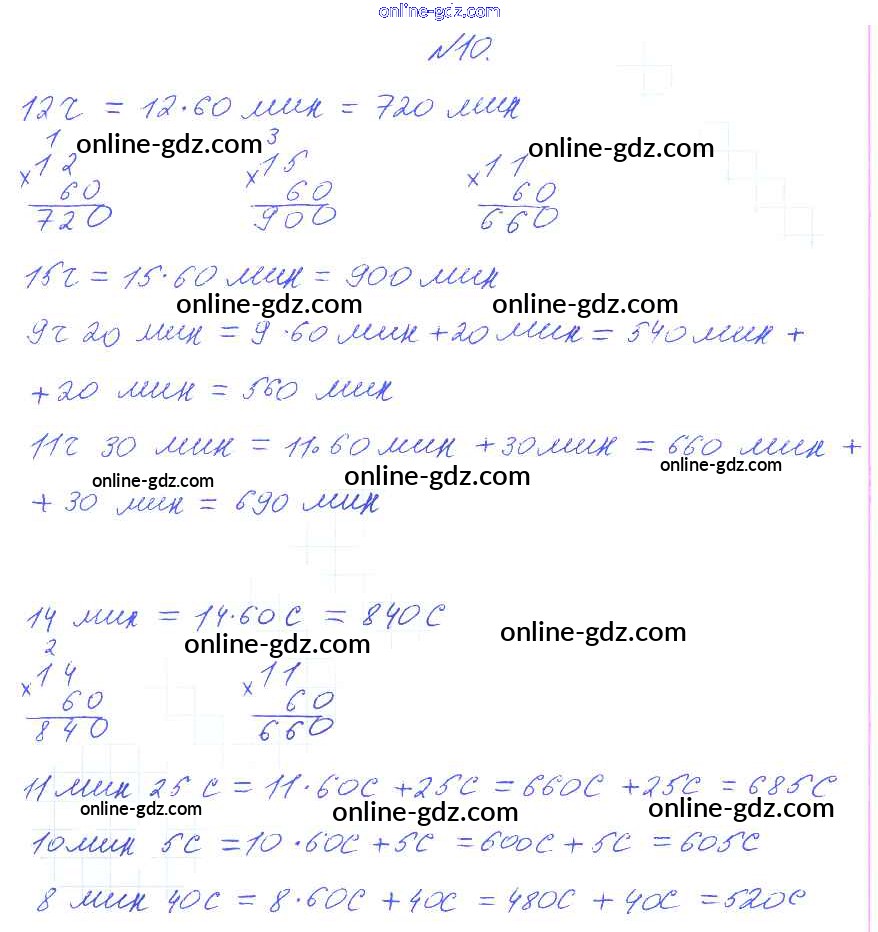 online-gdz.com
№10.
12ч = 12·60 мин = 720 мин
1 online-gdz.com 3 online-gdz.com
×12 ×15 ×11
60 60 60
720 900 660
15ч = 15·60 мин = 900 мин
online-gdz.com online-gdz.com
9ч 20 мин = 9·60 мин + 20 мин = 540 мин +
+ 20 мин = 560 мин
11ч 30 мин = 11·60 мин + 30 мин = 660 мин +
online-gdz.com online-gdz.com online-gdz.com
+ 30 мин = 690 мин
14 мин = 14·60 с = 840 с
online-gdz.com online-gdz.com
2
×14 ×11
60 60
840 660
11 мин 25 с = 11·60с + 25с = 660с + 25с = 685с
online-gdz.com online-gdz.com online-gdz.com
10 мин 5с = 10·60с + 5с = 600с + 5с = 605с
8 мин 40с = 8·60с + 40с = 480с + 40с = 520с